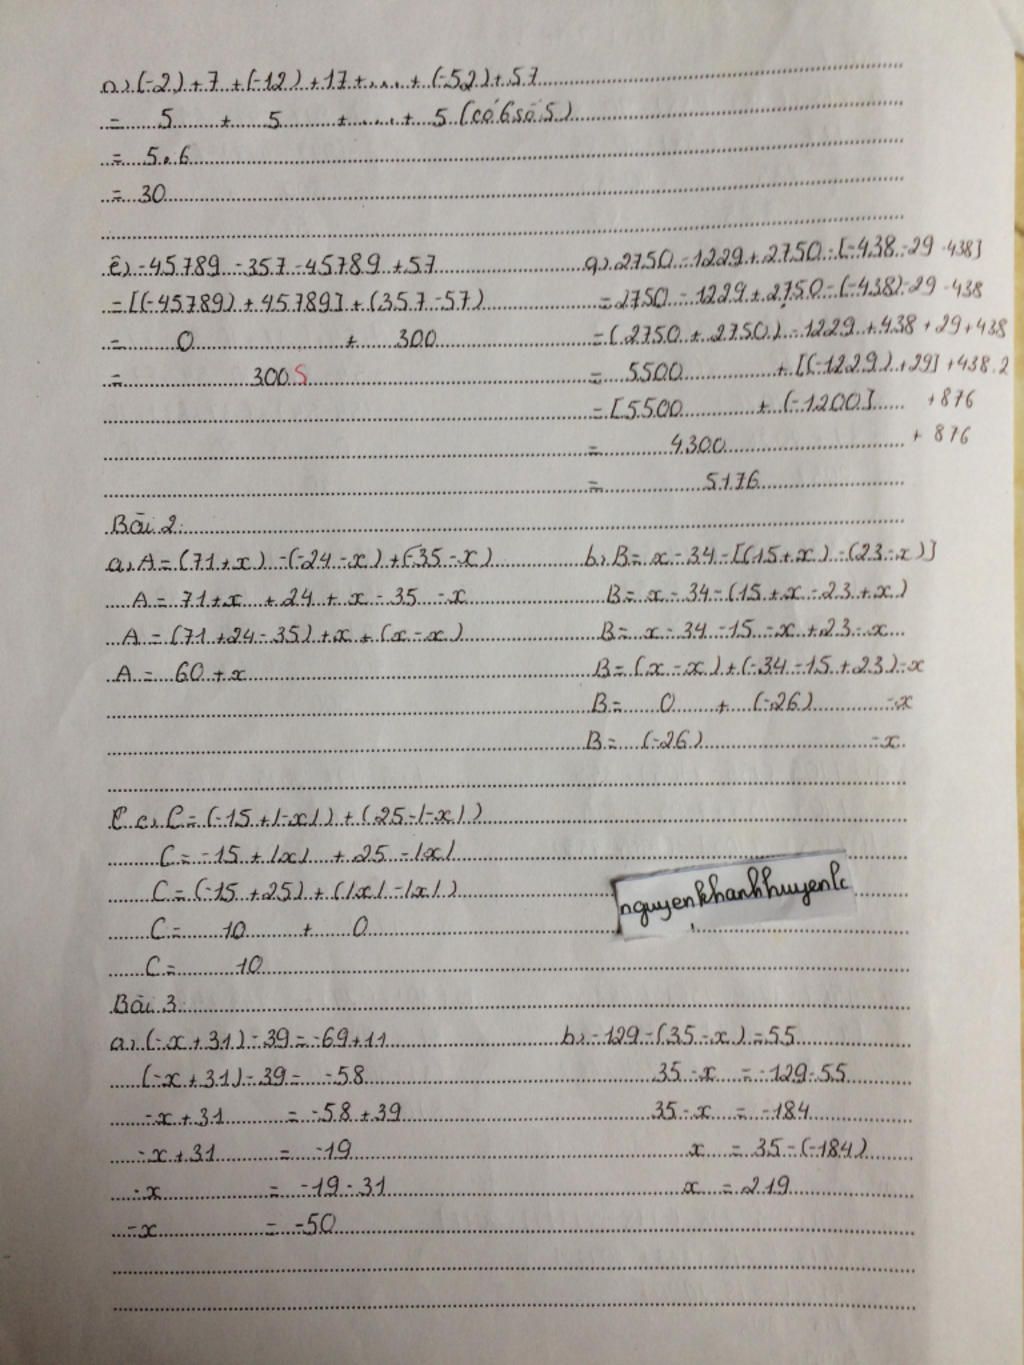 a, (-2) + 7 + (-12) + 17 + .... + (-52) + 57
= 5 + 5 + ..... + 5 (có 6 số 5)
= 5 . 6
= 30
e) -45789 - 357 - 45789 + 57
= [(-45789) + 45789] + (357 - 57)
= 0 + 300
= 300 S
g, 2750 - 1229 + 2750 - [-438 - 29 - 438]
= 2750 - 1229 + 2750 - (-438) - 29 - 438
= (2750 + 2750) - 1229 + 438 + 29 + 438
= 5500 + [(-1229) + 29] + 438.2
= [5500 + (-1200] + 876
= 4300 + 876
= 5176
Bài 2:
a, A = (71 + x) - (-24 - x) + (-35 - x)
A = 71 + x + 24 + x - 35 - x
A = (71 + 24 - 35) + x + (x - x)
A = 60 + x
b, B = x - 34 - [(15 + x) - (23 - x)]
B = x - 34 - (15 + x - 23 + x)
B = x - 34 - 15 - x + 23 - x
B = (x - x) + (-34 - 15 + 23) - x
B = 0 + (-26) - x
B = (-26) - x
c, C = (-15 + |-x|) + (25 - |-x|)
C = -15 + |x| + 25 - |x|
C = (-15 + 25) + (|x| - |x|)
C = 10 + 0
C = 10
nguyenkhanhhuyenlc
Bài 3:
a, (-x + 31) - 39 = -69 + 11
(-x + 31) - 39 = -58
-x + 31 = -58 + 39
-x + 31 = -19
-x = -19 - 31
-x = -50
b, -129 - (35 - x) = 55
35 - x = -129 - 55
35 - x = -184
x = 35 - (-184)
x = 219